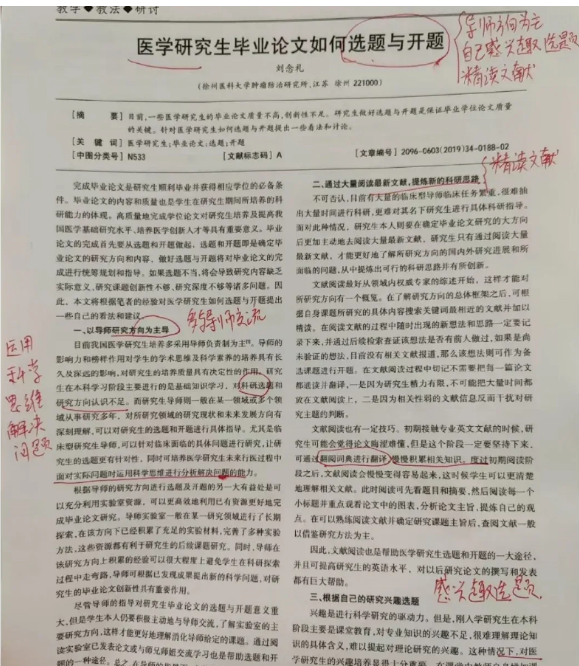 教学◆教法◆研讨
医学研究生毕业论文如何选题与开题
刘念礼
(徐州医科大学肿瘤防治研究所,江苏 徐州 221000)
[摘 要] 目前,一些医学研究生的毕业论文质量不高,创新性不足。研究生做好选题与开题是保证毕业学位论文质量
的关键。针对医学研究生如何选题与开题提出一些看法和讨论。
[关 键 词] 医学研究生;毕业论文;选题;开题
[中图分类号] N533 [文献标志码] A [文章编号] 2096-0603(2019)34-0188-02
导师方向为主
自己感兴趣选题
精读文献
完成毕业论文是研究生顺利毕业并获得相应学位的必备条
件。毕业论文的内容和质量也是学生在研究生期间所培养的科
研能力的体现。高质量地完成学位论文对研究生培养及提高我
国医学基础研究水平、培养医学创新人才等具有重要意义。毕业
论文的完成首先要从选题和开题做起,选题和开题即是确定毕
业论文的研究方向和内容。做好选题与开题将对毕业论文的完
成进行统筹规划和指导。如果选题不当,将会导致研究内容缺乏
实际意义、研究课题创新性不够、研究深度不够等诸多问题。因
此,本文将根据笔者的经验对医学研究生如何选题与开题提出
一些自己的看法和建议。
一、以导师研究方向为主导
多与导师交流
目前我国医学研究生培养多采用导师负责制为主。导师的
影响力和榜样作用对学生的学术思维及科学素养的培养具有长
久及深远的影响,对研究生的培养质量具有决定性的作用。研究
生在本科学习阶段主要进行的是基础知识学习,对科研选题和
研究方向认识不足。而研究生导师则一般在某一领域或多个领
域从事研究多年,对所研究领域的研究现状和未来发展方向有
深刻理解,可以对研究生的选题和开题进行具体指导。尤其是临
床型研究生导师,可以针对临床面临的具体问题进行研究,让研
究生的选题更有针对性。同时可培养医学研究生未来行医过程中
面对实际问题时运用科学思维进行分析解决问题的能力。
应用
科学
思维
解决
问题
根据导师的研究方向进行选题及开题的另一大有益处是可
以充分利用实验室资源,可以更高效地利用已有资源更好地完
成毕业论文研究。导师实验室一般在某一研究领域进行了长期
探索,在该方向下已经积累了充足的实验材料,完善了多种实验
方法,这些资源都有利于研究生的后续课题研究。同时,导师在
该研究方向上积累的经验可以很大程度上避免学生在科研探索
过程中走弯路,导师可根据已发现成果提出新的科学问题,对研
究生的毕业论文创新性具有重要作用。
尽管导师的指导对研究生毕业论文的选题与开题意义重
大,但是学生本人仍要积极主动地与导师交流,了解实验室的主
要研究方向,这样才能更好地理解消化导师给定的课题。通过阅
读实验室已发表论文或与师兄师姐交流或学习也是帮助选题和开
二、通过大量阅读最新文献,提炼新的科研思路
精读文献
不可否认,目前有大量的临床型导师临床任务繁重,很难抽
出大量时间进行科研,更难对其名下研究生进行具体科研指导。
面对此种情况,研究生本人则要在确定毕业论文研究的大方向
后更加主动地去阅读大量最新文献。研究生只有通过阅读大量
最新文献,才能更好地了解所研究方向的国内外研究进展和所
面临的问题,从中提炼出可行的科研思路并有所创新。
文献阅读最好从领域内权威专家的综述开始,这样才能对
所研究方向有一个概览。在了解研究方向的总体框架之后,可根
据自身课题所研究的具体内容搜索关键词最相近的文献并加以
精读。在阅读文献的过程中随时出现的新想法和思路一定要记
录下来,并通过后续检索查证该想法是否有前人做过,如果是尚
未验证的想法,目前没有相关文献报道,那么该想法则可作为备
选课题进行开题。在文献阅读过程中切记不需要把每一篇论文
都逐读并翻译,一是因为研究生精力有限,不可能把大量时间都
放在文献阅读上,二是因为相关性弱的文献信息反而干扰对研
究主题的判断。
文献阅读也有一定技巧。初期接触专业英文文献的时候,研
究生可能会觉得论文晦涩难懂,但是这个阶段一定要坚持下来,
可通过翻阅词典进行翻译,慢慢积累相关知识。度过初期阅读阶
段之后,文献阅读会慢慢变得容易起来,这时候学生可以更清楚
地理解相关文献。此时阅读可先看题目和摘要,然后阅读每一个
小标题并重点观看论文中的图表,分析论文主旨,提炼自己的观
点。在可以熟练阅读文献并确定研究课题主旨后,查阅文献一般
以借鉴研究方法为主。
因此,文献阅读也是帮助医学研究生选题和开题的一大途径,
并且可提高研究生的英语水平,对以后研究论文的撰写和发表
都有巨大帮助。
感兴趣选题
三、根据自己的研究兴趣选题
兴趣是进行科学研究的驱动力。但是,刚入学研究生在本科
阶段主要是课堂教育,对专业知识的兴趣不足,很难理解理论知
识的具体含义,难以提起对理论研究的兴趣。这种情况下,对医